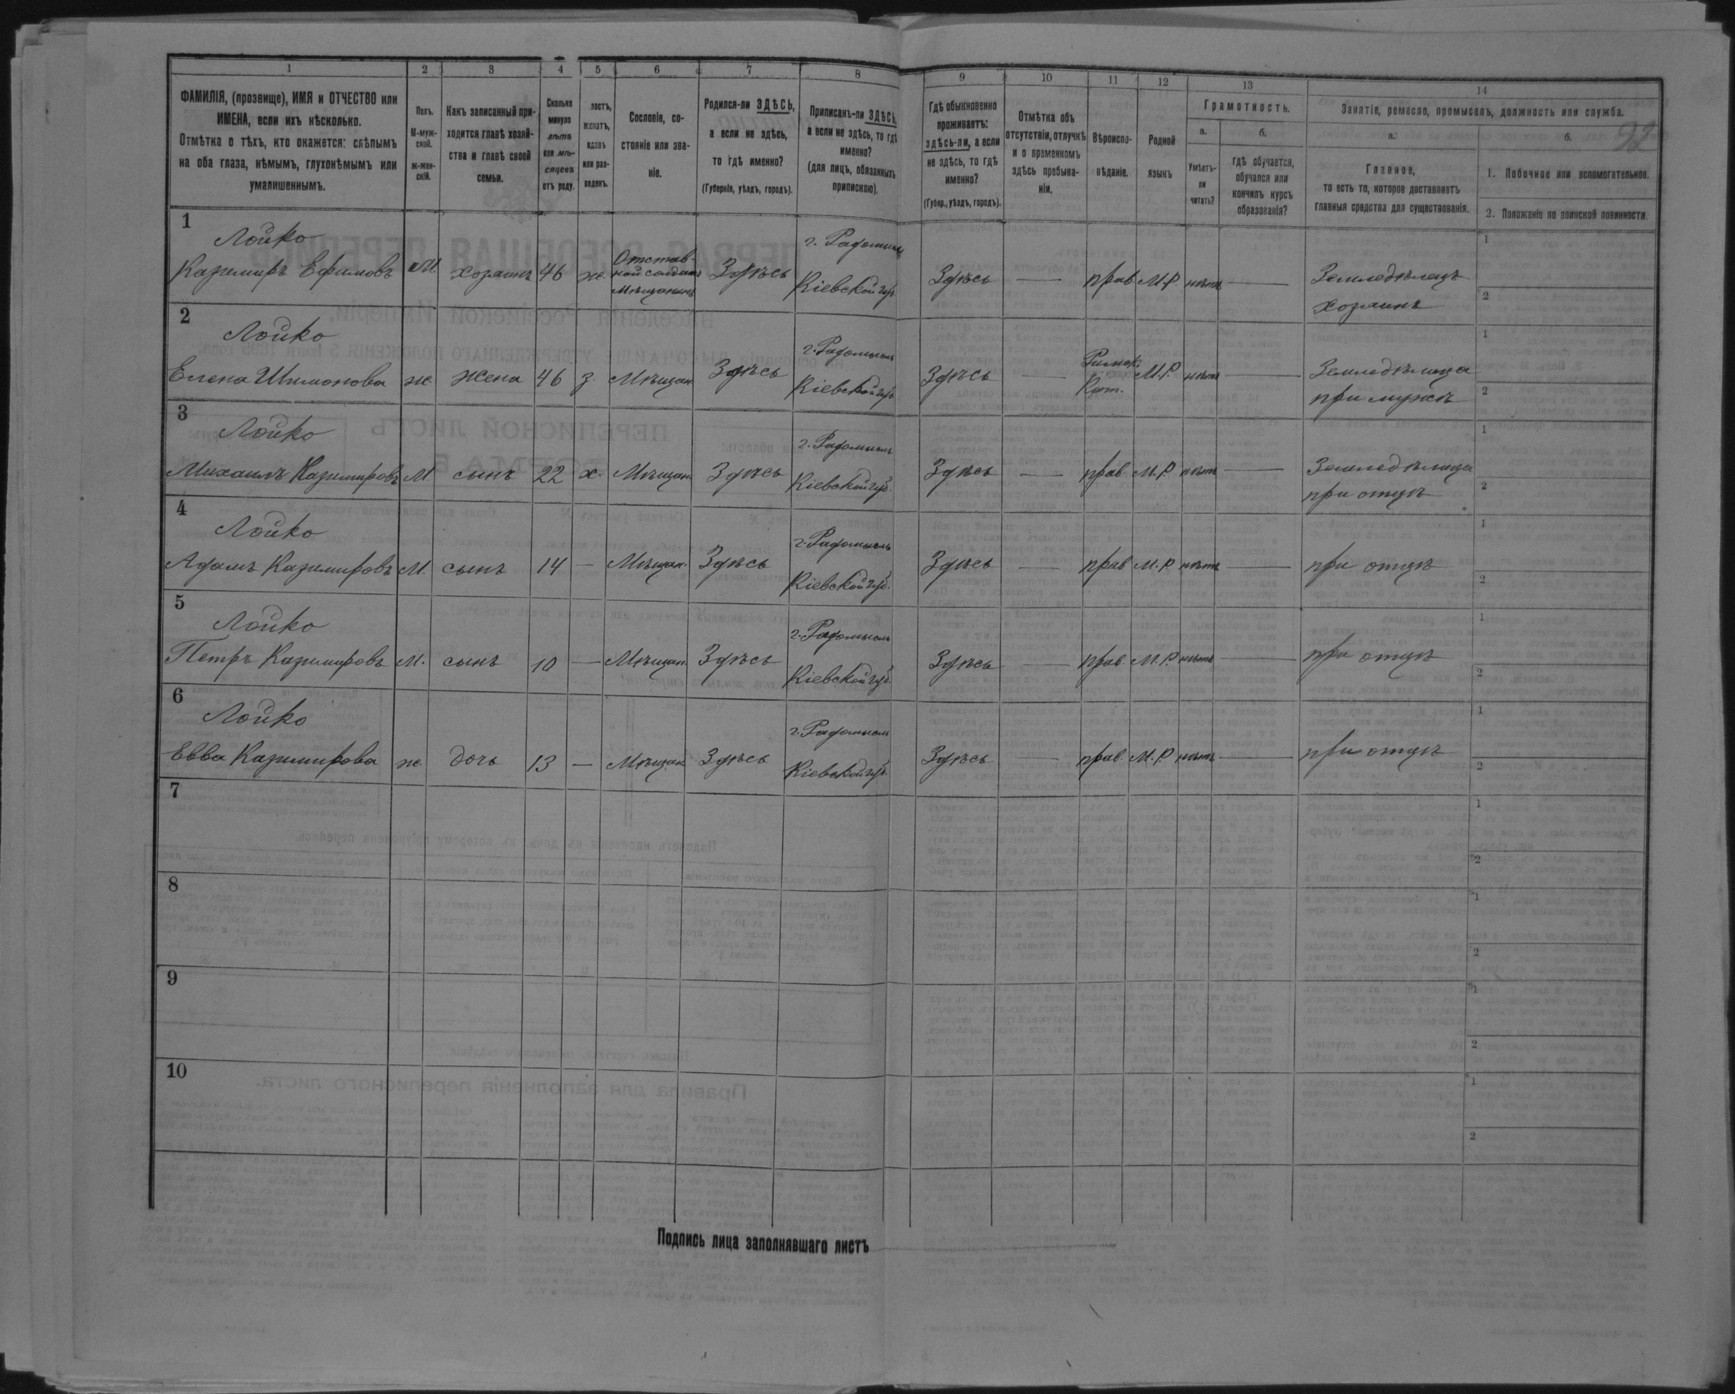 1 2 3 4 5 6 7 8 9 10 11 12 13 14
ФАМИЛІЯ, (прозвище), ИМЯ и ОТЧЕСТВО или
ИМЕНА, если ихъ нѣсколько.
Отмѣтка о тѣхъ, кто окажется: слѣпымъ
на оба глаза, нѣмымъ, глухонѣмымъ или
умалишеннымъ.
Полъ.
М-муж-
ской.
ж-жен-
скій.
Какъ записанный при-
ходится главѣ хозяй-
ства и главѣ своей
семьи.
Сколько
минуло
лѣтъ
или мѣ-
сяцевъ
отъ роду.
лостъ,
женатъ,
вдовъ
или раз-
веденъ.
Сословіе, со-
стояніе или зва-
ніе.
Родился-ли ЗДѢСЬ,
а если не здѣсь,
то гдѣ именно?
(Губернія, уѣздъ, городъ).
Приписанъ-ли ЗДѢСЬ,
а если не здѣсь, то гдѣ
именно?
(для лицъ, обязанныхъ
припискою).
Гдѣ обыкновенно
проживаетъ:
здѣсь-ли, а если
не здѣсь, то гдѣ
именно?
(Губер., уѣздъ, городъ).
Отмѣтка объ
отсутствіи, отлучкѣ
и о временномъ
здѣсь пребыва-
ніи.
Вѣроиспо-
вѣданіе.
Родной
языкъ
Грамотность.
а.
Умѣетъ-
ли
читать?
б.
гдѣ обучается,
обучался или
кончилъ курсъ
образованія?
Занятіе, ремесло, промыселъ, должность или служба.
а.
Главное,
то есть то, которое доставляетъ
главныя средства для существованія.
б.
1. Побочное или вспомогательное.
2. Положеніе по воинской повинности.
1
Лойко
Казимиръ Ефимовъ М. хозяинъ 46 ж. Отстав-
ной солдатъ
Мѣщанинъ Здѣсь г. Радомысль
Кіевской губ. Здѣсь — прав. М.Р. нѣтъ — Земледѣлецъ
хозяинъ 1 2
2
Лойко
Елена Шимонова ж жена 46 з. Мѣщан. Здѣсь г. Радомысль
Кіевской губ. Здѣсь — Римск.
Кат. М.Р. нѣтъ — Земледѣлица
при мужѣ 1 2
3
Лойко
Михаилъ Казимировъ М сынъ 22 х. Мѣщан. Здѣсь г. Радомысль
Кіевской губ. Здѣсь — прав. М.Р. нѣтъ — Земледѣлица
при отцѣ 1 2
4
Лойко
Адамъ Казимировъ М. сынъ 14 — Мѣщан. Здѣсь г. Радомысль
Кіевской губ. Здѣсь — прав М.Р нѣтъ — при отцѣ 1 2
5
Лойко
Петръ Казимировъ М. сынъ 10 — Мѣщан. Здѣсь г. Радомысль
Кіевской губ. Здѣсь — прав М.Р нѣтъ — при отцѣ 1 2
6
Лойко
Евва Казимирова ж дочь 13 — Мѣщан Здѣсь г. Радомысль
Кіевской губ. Здѣсь — прав. М.Р нѣтъ — при отцѣ 1 2
7 1 2
8 1 2
9 1 2
10 1 2
Подпись лица заполнявшаго листъ